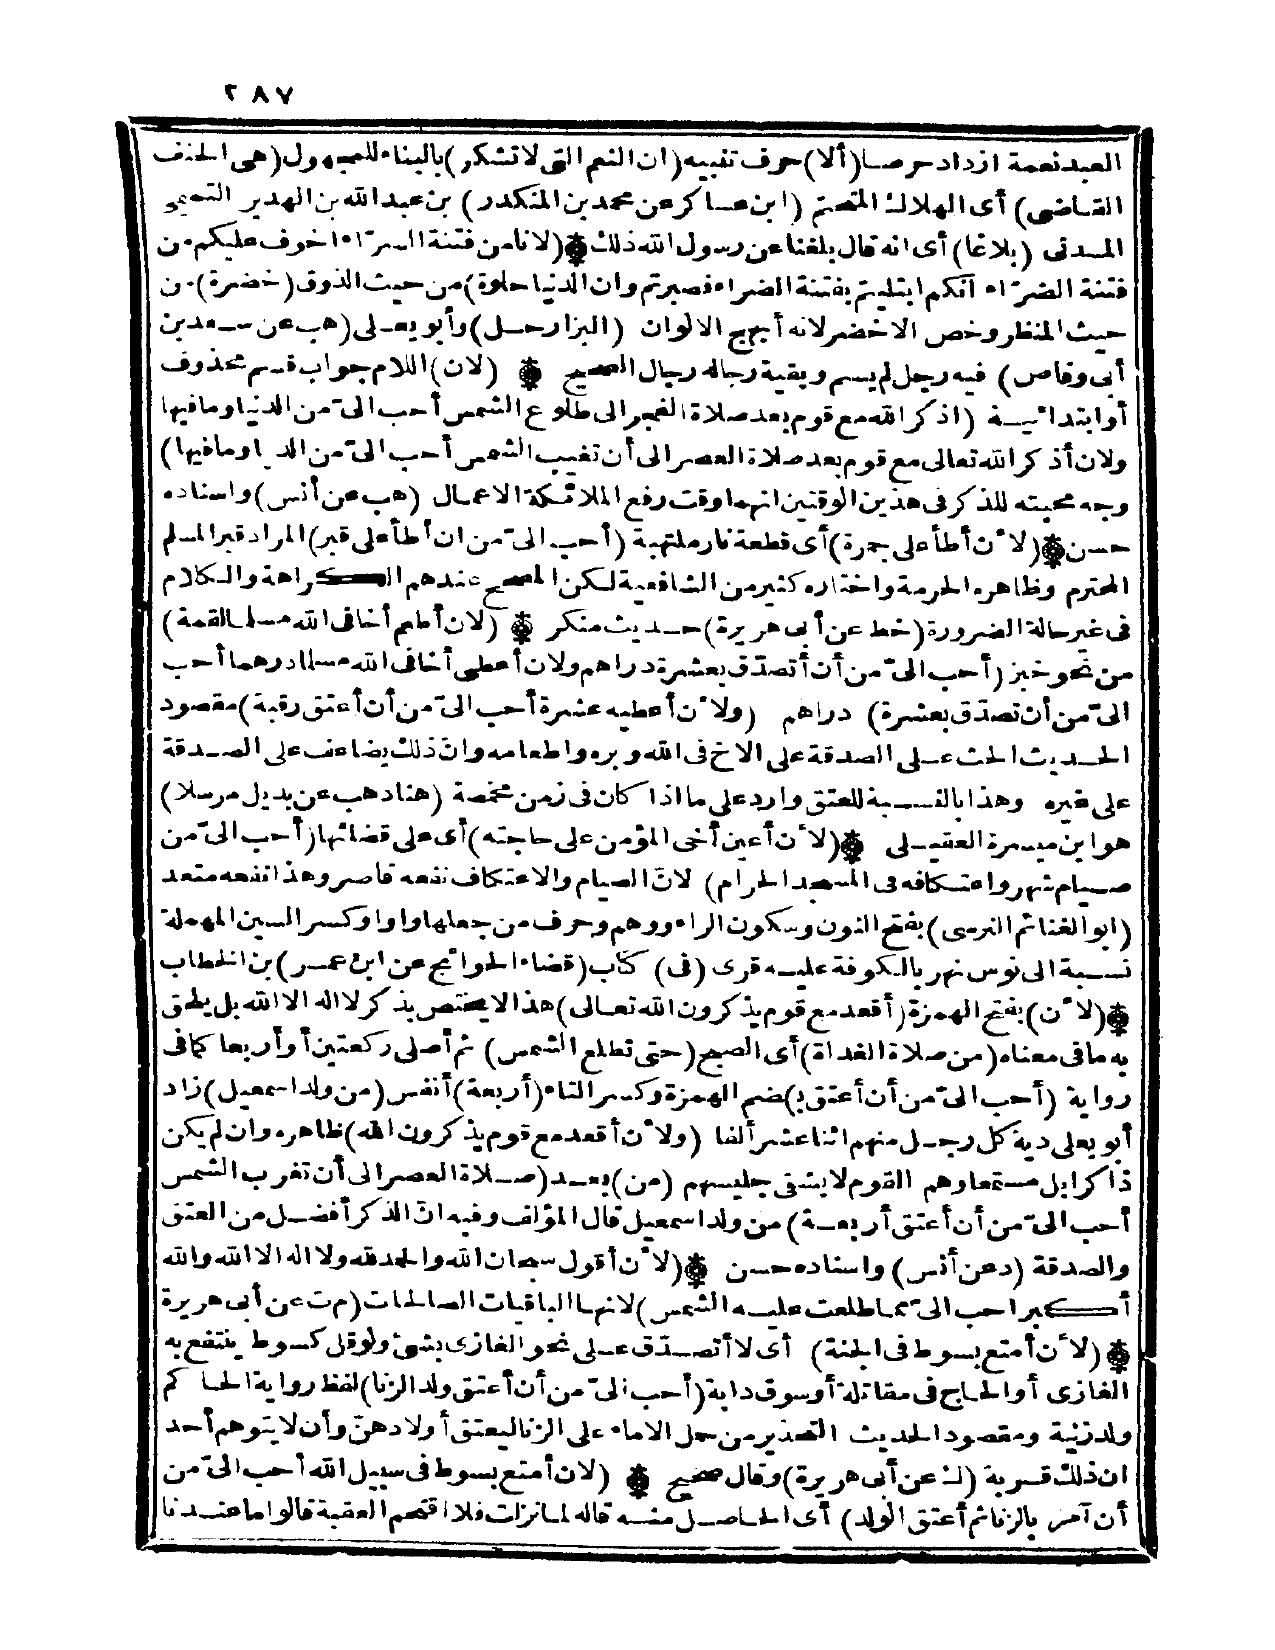 ٢٨٧
العبد نعمة ازداد حرصا (ألا) حرف تنبيه (ان النعم التى لا تشكر) بالبناء للمجهول (هى الحتف
القاضى) أى الهلاك المتحتم (ابن عساكر عن محمد بن المنكدر) بن عبد الله بن الهدير التميمى
المدنى (بلاغا) أى انه قال بلغنا عن رسول الله ذلك (لانا من فتنة السرّاء اخوف عليكم من
فتنة الضرّاء انكم ابتليتم بفتنة الضراء فصبرتم وان الدنيا حلوة) من حيث الذوق (خضرة) من
حيث المنظر وخص الاخضر لانه أبهج الالوان (البزار حل) وأبو يعلى (هب عن سعد بن
أبى وقاص) فيه رجل لم يسم وبقية رجاله رجال الصحيح (لان) اللام جواب قسم محذوف
أو ابتدائية (اذكر الله مع قوم بعد صلاة الفجر الى طلوع الشمس أحب الىّ من الدنيا وما فيها
ولان أذكر الله تعالى مع قوم بعد صلاة العصر الى أن تغيب الشمس أحب الىّ من الدنيا وما فيها)
وجه محبته للذكر فى هذين الوقتين انهما وقت رفع الملائكة الاعمال (هب عن أنس) واسناده
حسن (لأن أطأ على جمرة) أى قطعة نار ملتهبة (أحب الىّ من ان أطأ على قبر) المراد قبر المسلم
المحترم وظاهره الحرمة واختاره كثير من الشافعية لكن المصحح عندهم الكراهة والكلام
فى غير حالة الضرورة (خط عن أبى هريرة) حديث منكر (لان أطعم أخا فى الله مسلما لقمة)
من نحو خبز (أحب الىّ من أن أتصدّق بعشرة دراهم ولان أعطى أخا فى الله مسلما درهما أحب
الىّ من أن تصدّق بعشرة) دراهم (ولأن أعطيه عشرة أحب الىّ من أن أعتق رقبة) مقصود
الحديث الحث على الصدقة على الاخ فى الله وبره واطعامه وانّ ذلك يضاعف على الصدقة
على غيره وهذا بالنسبة للعتق وارد على ما اذا كان فى زمن مخمصة (هناد هب عن بديل مرسلا)
هو ابن ميسرة العقيلى (لأن أعين أخى المؤمن على حاجته) أى على قضائها (أحب الىّ من
صيام شهر واعتكافه فى المسجد الحرام) لانّ الصيام والاعتكاف نفعه قاصر وهذا نفعه متعد
(ابو الغنائم النرسى) بفتح النون وسكون الراء ووهم وحرف من جعلها واوا وكسر السين المهملة
نسبة الى نوس نهر بالكوفة عليه قرى (فى) كتاب (قضاء الحوائج عن ابن عمر) بن الخطاب
(لأن) بفتح الهمزة (أقعد مع قوم يذكرون الله تعالى) هذا لا يختص بذكر لا اله الا الله بل يلحق
به ما فى معناه (من صلاة الغداة) أى الصبح (حتى تطلع الشمس) ثم أصلى ركعتين أو أربعا كما فى
رواية (أحب الىّ من أن أعتق) بضم الهمزة وكسر التاء (أربعة) أنفس (من ولد اسمعيل) زاد
أبو يعلى دية كل رجل منهم اثنا عشر ألفا (ولأن أقعد مع قوم يذكرون الله) ظاهره وان لم يكن
ذاكرا بل مستمعا وهم القوم لا يشقى جليسهم (من) بعد (صلاة العصر الى أن تغرب الشمس
أحب الىّ من أن أعتق أربعة) من ولد اسمعيل قال المؤلف وفيه انّ الذكر أفضل من العتق
والصدقة (د عن أنس) واسناده حسن (لأن أقول سبحان الله والحمد لله ولا اله الا الله والله
أكبر احب الىّ مما طلعت عليه الشمس) لانها الباقيات الصالحات (م ت عن أبى هريرة
(لأن أمتع بسوط فى الجنة) أى لا أتصدّق على نحو الغازى بشئ ولو قل كسوط ينتفع به
الغازى أو الحاج فى مقاتلة أو سوق دابة (أحب الىّ من أن أعتق ولد الزنا) لفظ رواية الحاكم
ولد زنية ومقصود الحديث التحذير من حمل الاماء على الزنا ليعتق أولادهنّ وأن لا يتوهم أحد
ان ذلك قربة (ك عن أبى هريرة) وقال صحيح (لان أمتع بسوط فى سبيل الله أحب الىّ من
أن آمر بالزنا ثم أعتق الولد) أى الحاصل منه قاله لما نزلت فلا اقتحم العقبة قالوا ما عندنا